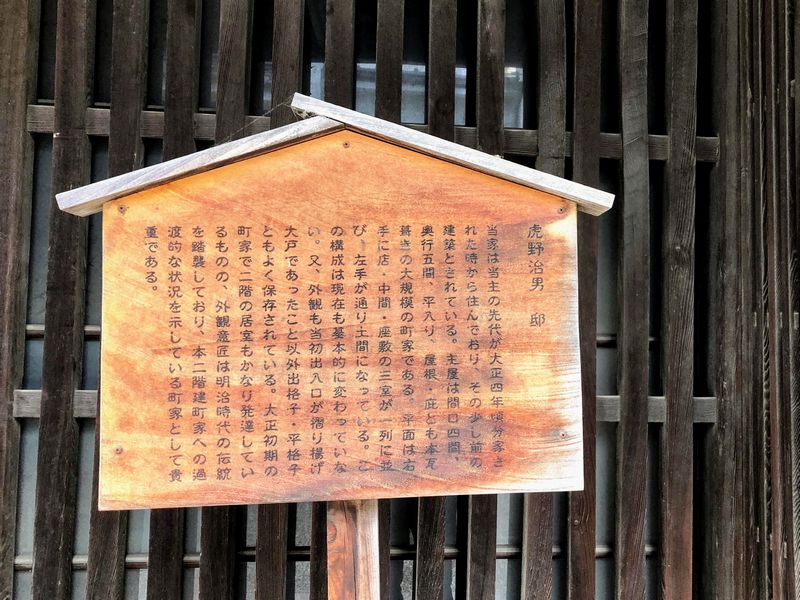 虎野治男 邸
当家は当主の先代が大正四年頃分家さ
れた時から住んでおり、その少し前の
建築とされている。主屋は間口四間、
奥行五間、平入り、屋根・庇とも本瓦
葺きの大規模の町家である。平面は右
手に店・中間・座敷の三室が一列に並
び、左手が通り土間になっている。こ
の構成は現在も基本的に変わっていな
い。又、外観も当初出入口が摺り揚げ
大戸であったこと以外出格子・平格子
ともよく保存されている。大正初期の
町家で二階の居室もかなり発達してい
るものの、外観意匠は明治時代の伝統
を踏襲しており、本二階建町家への過
渡的な状況を示している町家として貴
重である。